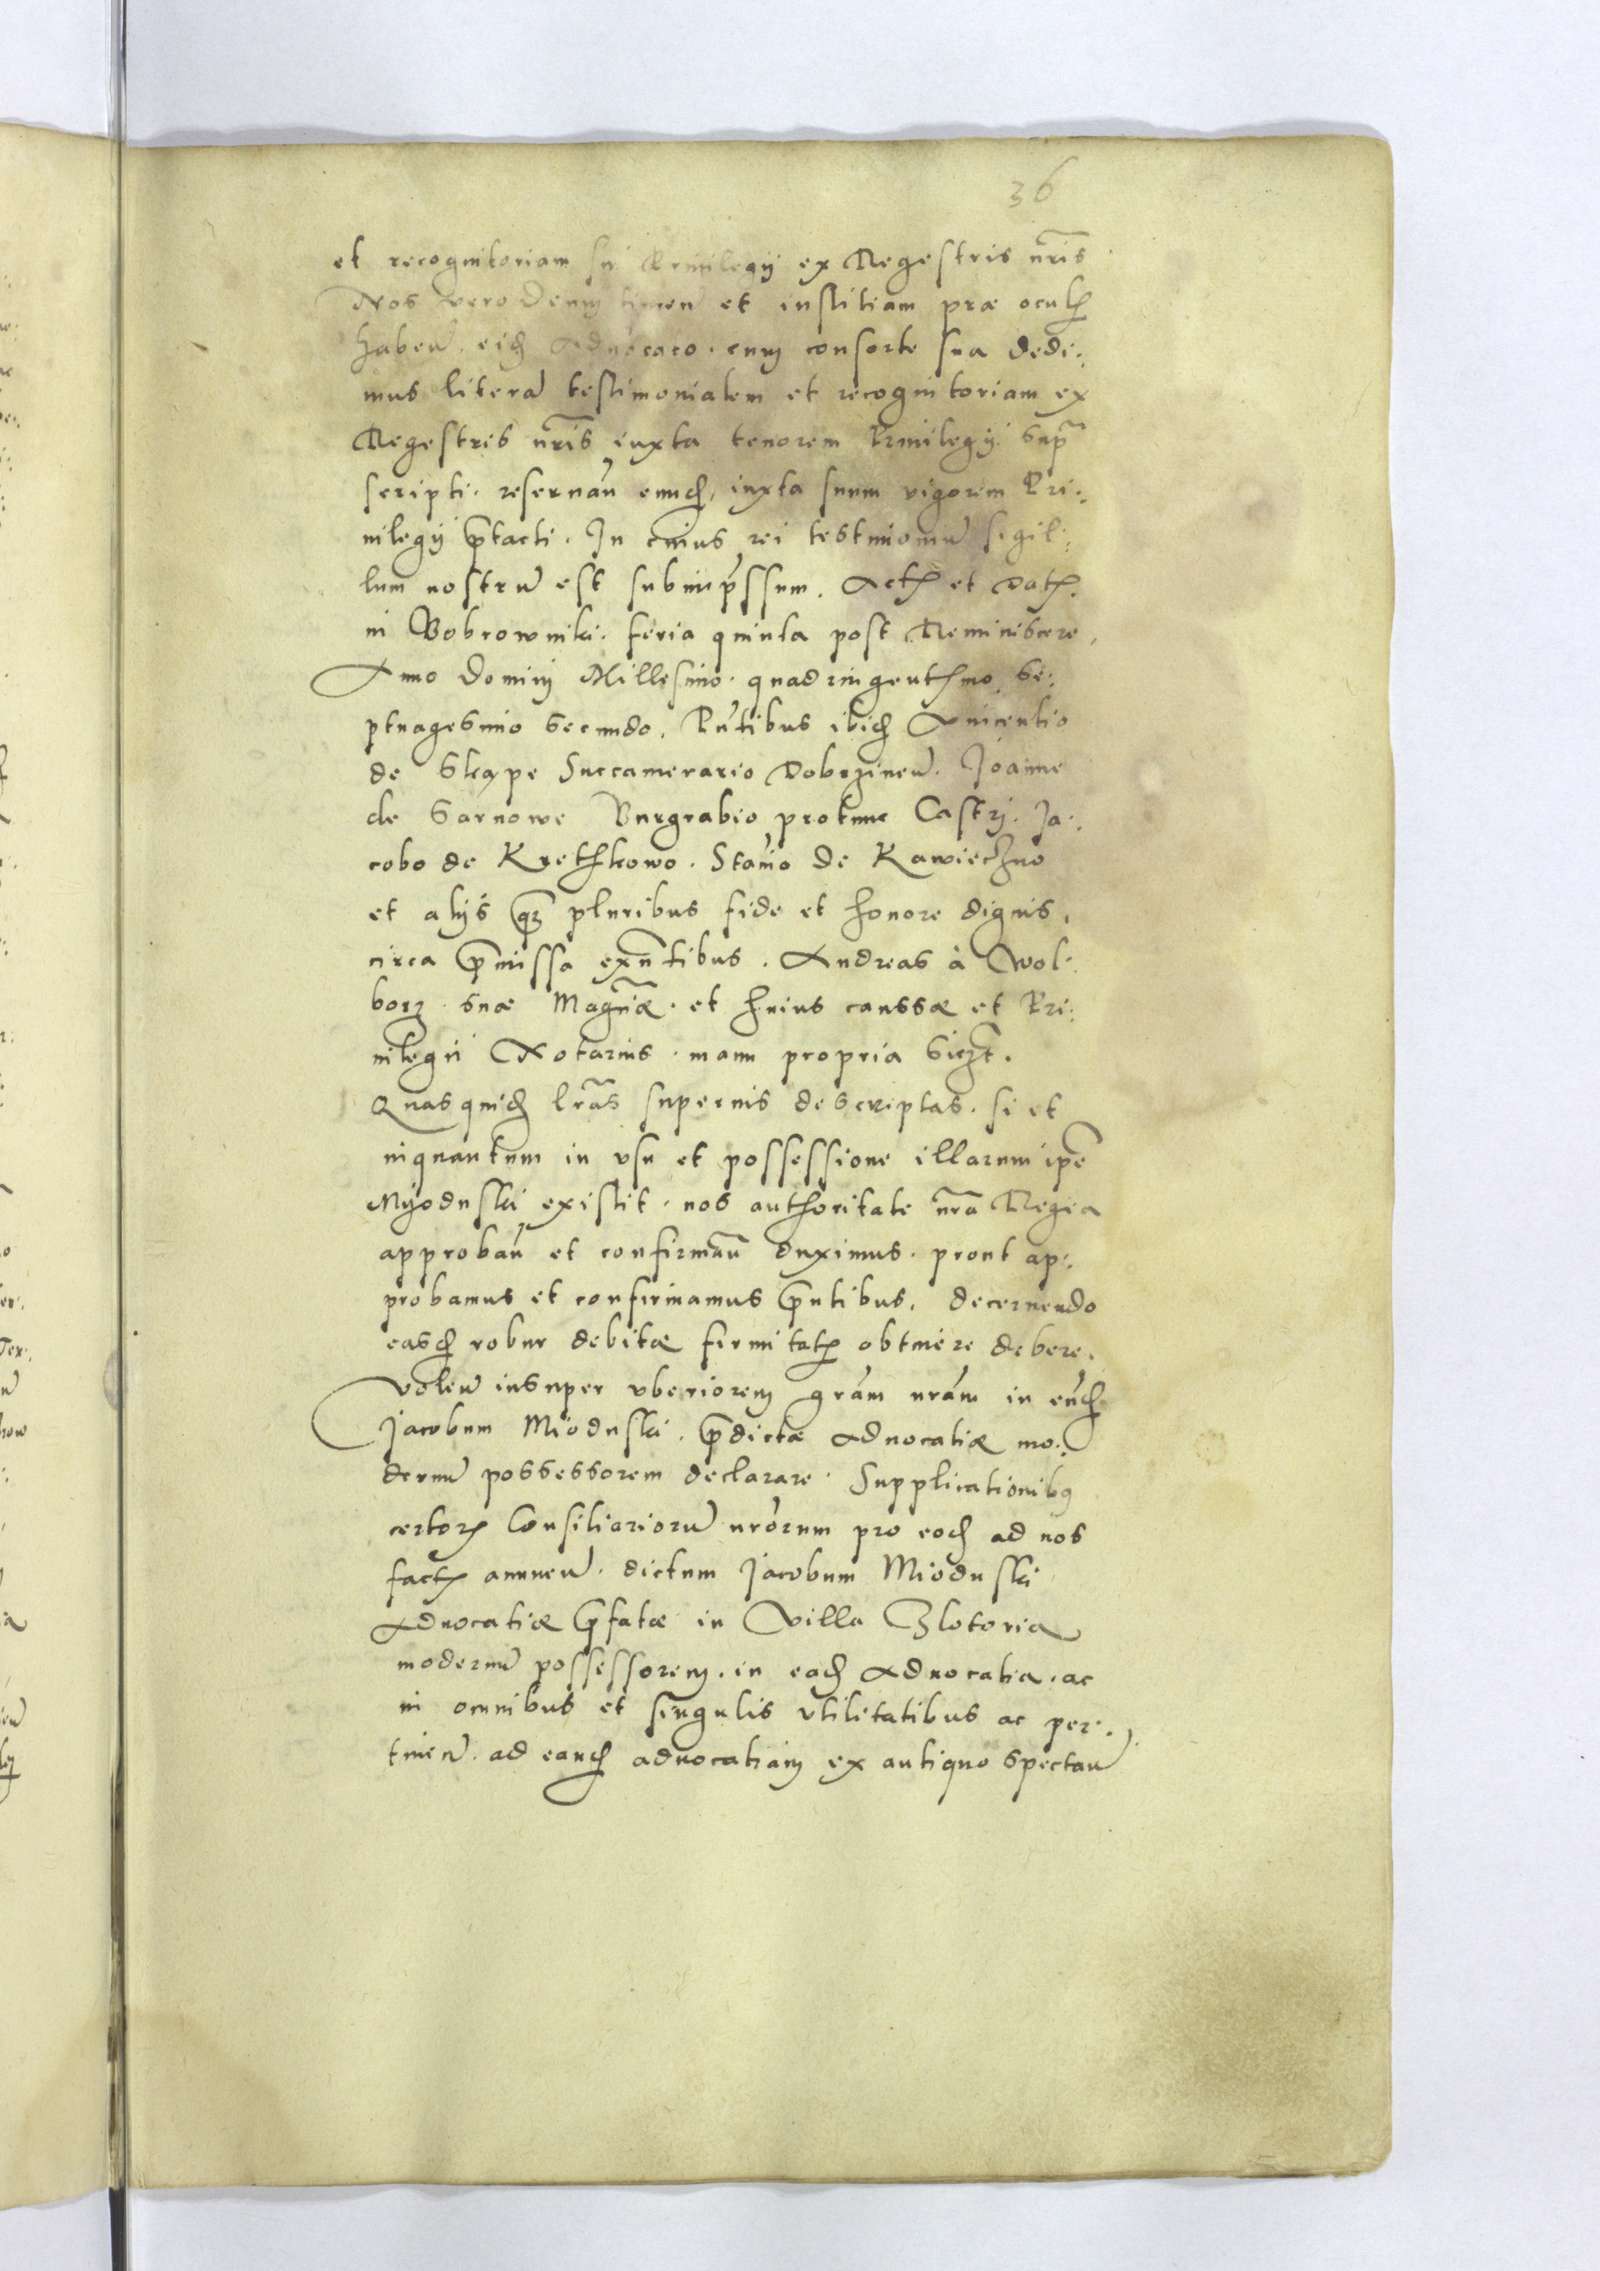 36
et recognitoriam sui Priuilegij ex Regestris nr̃is
Nos vero Deum timen̄ et iustitiam præ oculꝭ
haben̄. eidꝫ Aduocato. cum consorte sua dedi:
mus litera᷒ testimonialem et recognitoriam ex
Regestris nr̃is iuxta tenorem Priuilegij sup̃
scripti. reseruan̄ eundꝫ, iuxta suum vigorem Pri:
uilegij p̃tacti. In cuius rei testimoniu᷒ sigil:
lum nostru᷒ est subimp̃ssum. Actꝫ et Datꝫ.
in Bobrowniki. feria quinta post Reminiscere.
Anno Domini Millesimo. quadringentꝫmo, se:
ptuagesimo secundo. Pñtibus ibidꝫ Vnicentio
de Skąpe Succamerario Dobrzinen̄. Joanne
de Sarnowe Burgrabio protunc Castri. Ja:
cobo de Krethkowo. Stan̄o de Kawieczno
et alijs qꝫ pluribus fide et honore dignis.
circa p̃missa exñtibus. Andreas à Wol:
borz. suæ Magñiæ. et huius caussæ et Pri:
uilegii Notarius. manu propria
Quas quidꝫ lr̃as superius descriptas. si et
inquantum in vsu et possessione illarum ip̃e
Myoduski existit. nos authoritate nr̃a Regia
approban̄ et confirman̄ duximus. prout ap:
probamus et confirmamus p̃ntibus. decernendo
easdꝫ robur debitæ firmitatꝫ obtinere debere.
Volen̄ insuper vberiorem grãm nrãm in eundꝫ
Jacobum Mioduski. p̃dictæ Aduocatiæ mo:
dernu᷒ possessorem declarare. Supplicationibꝰ
certorꝫ Consiliarioru᷒ nr̃orum pro eodꝫ ad nos
factꝫ annuen̄. dictum Jacobum Mioduski
Aduocatiæ p̃fatæ in Villa Zlotoria
modernu᷒ possessorem. in eadꝫ Aduocatia. ac
in omnibus et singulis vtilitatibus ac per:
tinen̄. ad eandꝫ aduocatiam ex antiquo spectan̄